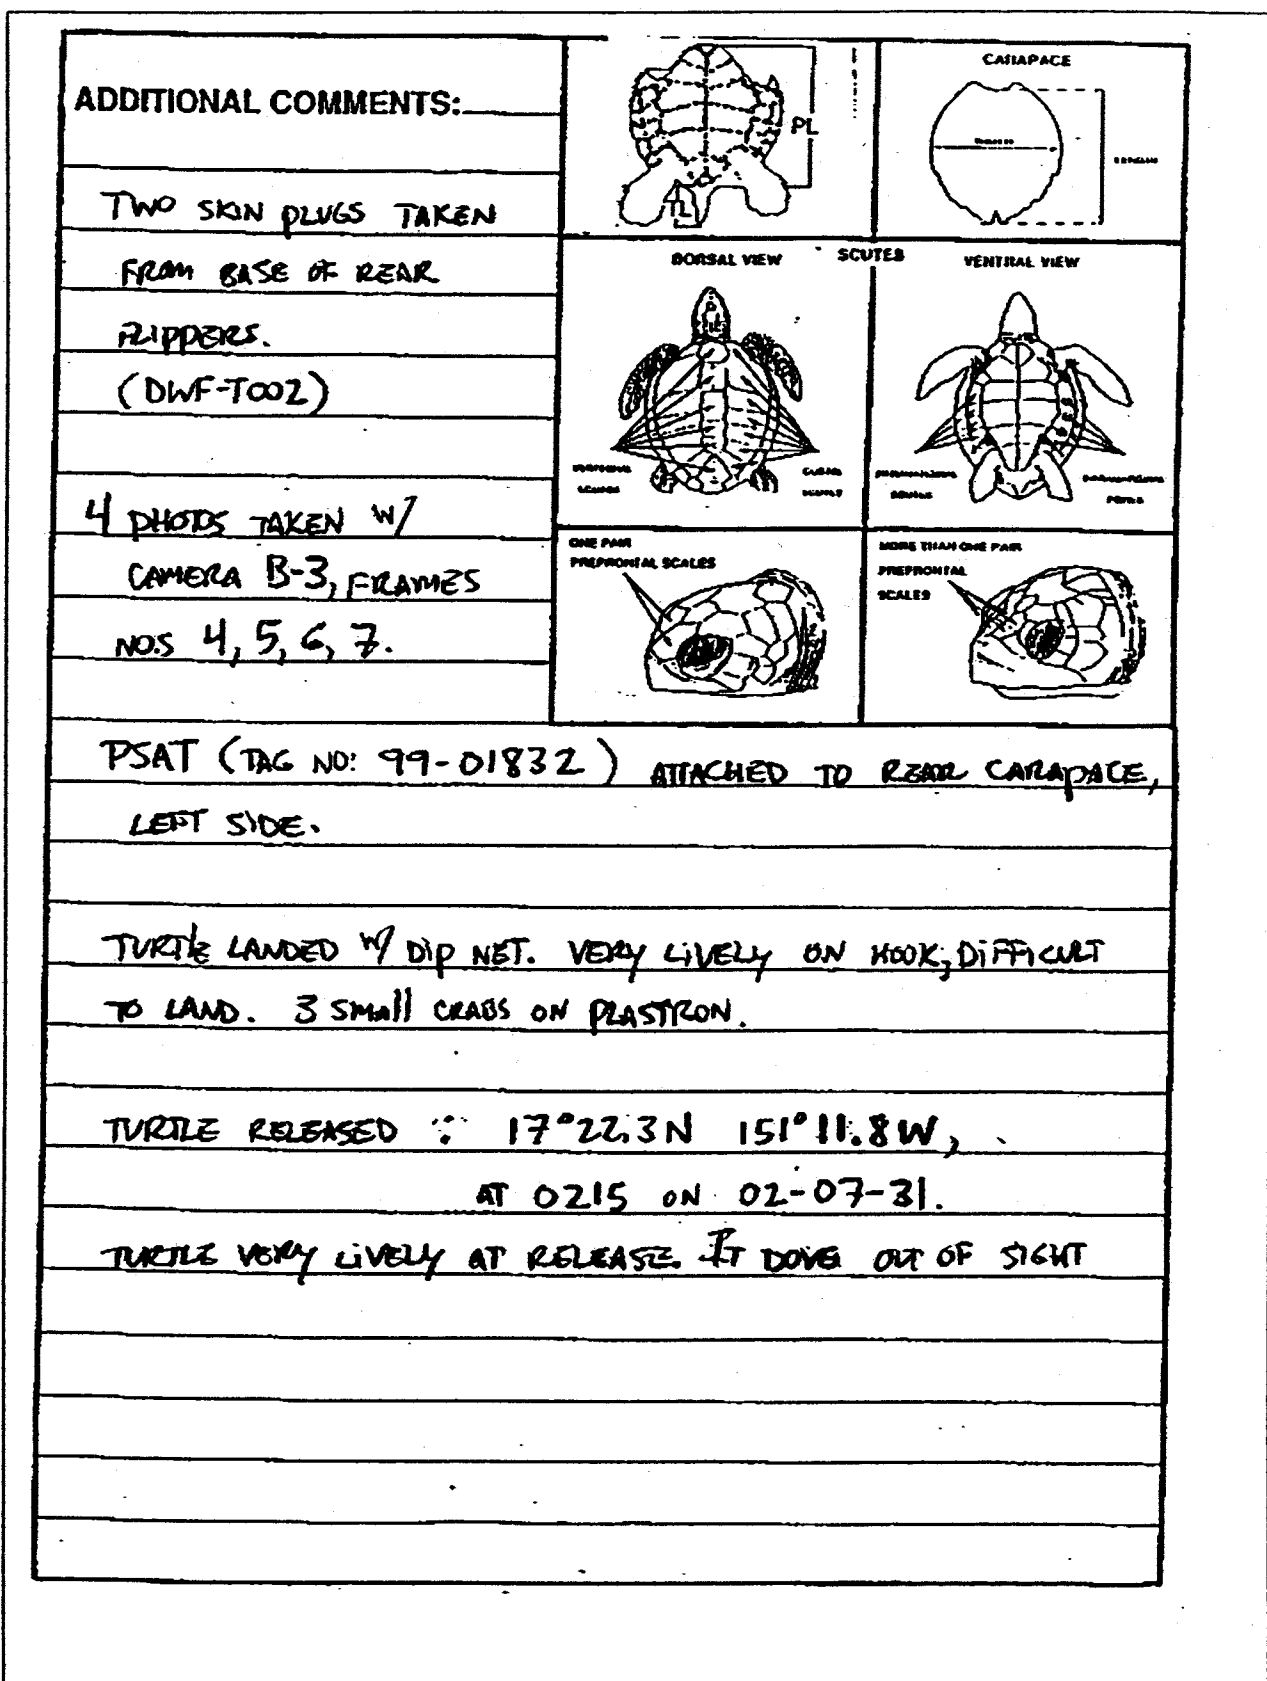 ADDITIONAL COMMENTS:
TWO SKIN PLUGS TAKEN
FROM BASE OF REAR
FLIPPERS.
(DWF-T002)
4 PHOTOS TAKEN W/
CAMERA B-3, FRAMES
NO.S 4, 5, 6, 7.
PL
TL
CARAPACE
DORSAL VIEW
SCUTES
VENTRAL VIEW
ONE PAIR
PREFRONTAL SCALES
MORE THAN ONE PAIR
PREFRONTAL
SCALES
PSAT (TAG NO: 99-01832) ATTACHED TO REAR CARAPACE,
LEFT SIDE.
TURTLE LANDED W/ DIP NET. VERY LIVELY ON HOOK; DIFFICULT
TO LAND. 3 SMALL CRABS ON PLASTRON.
TURTLE RELEASED : 17°22.3N 151°11.8W,
AT 0215 ON 02-07-31.
TURTLE VERY LIVELY AT RELEASE. IT DOVE OUT OF SIGHT